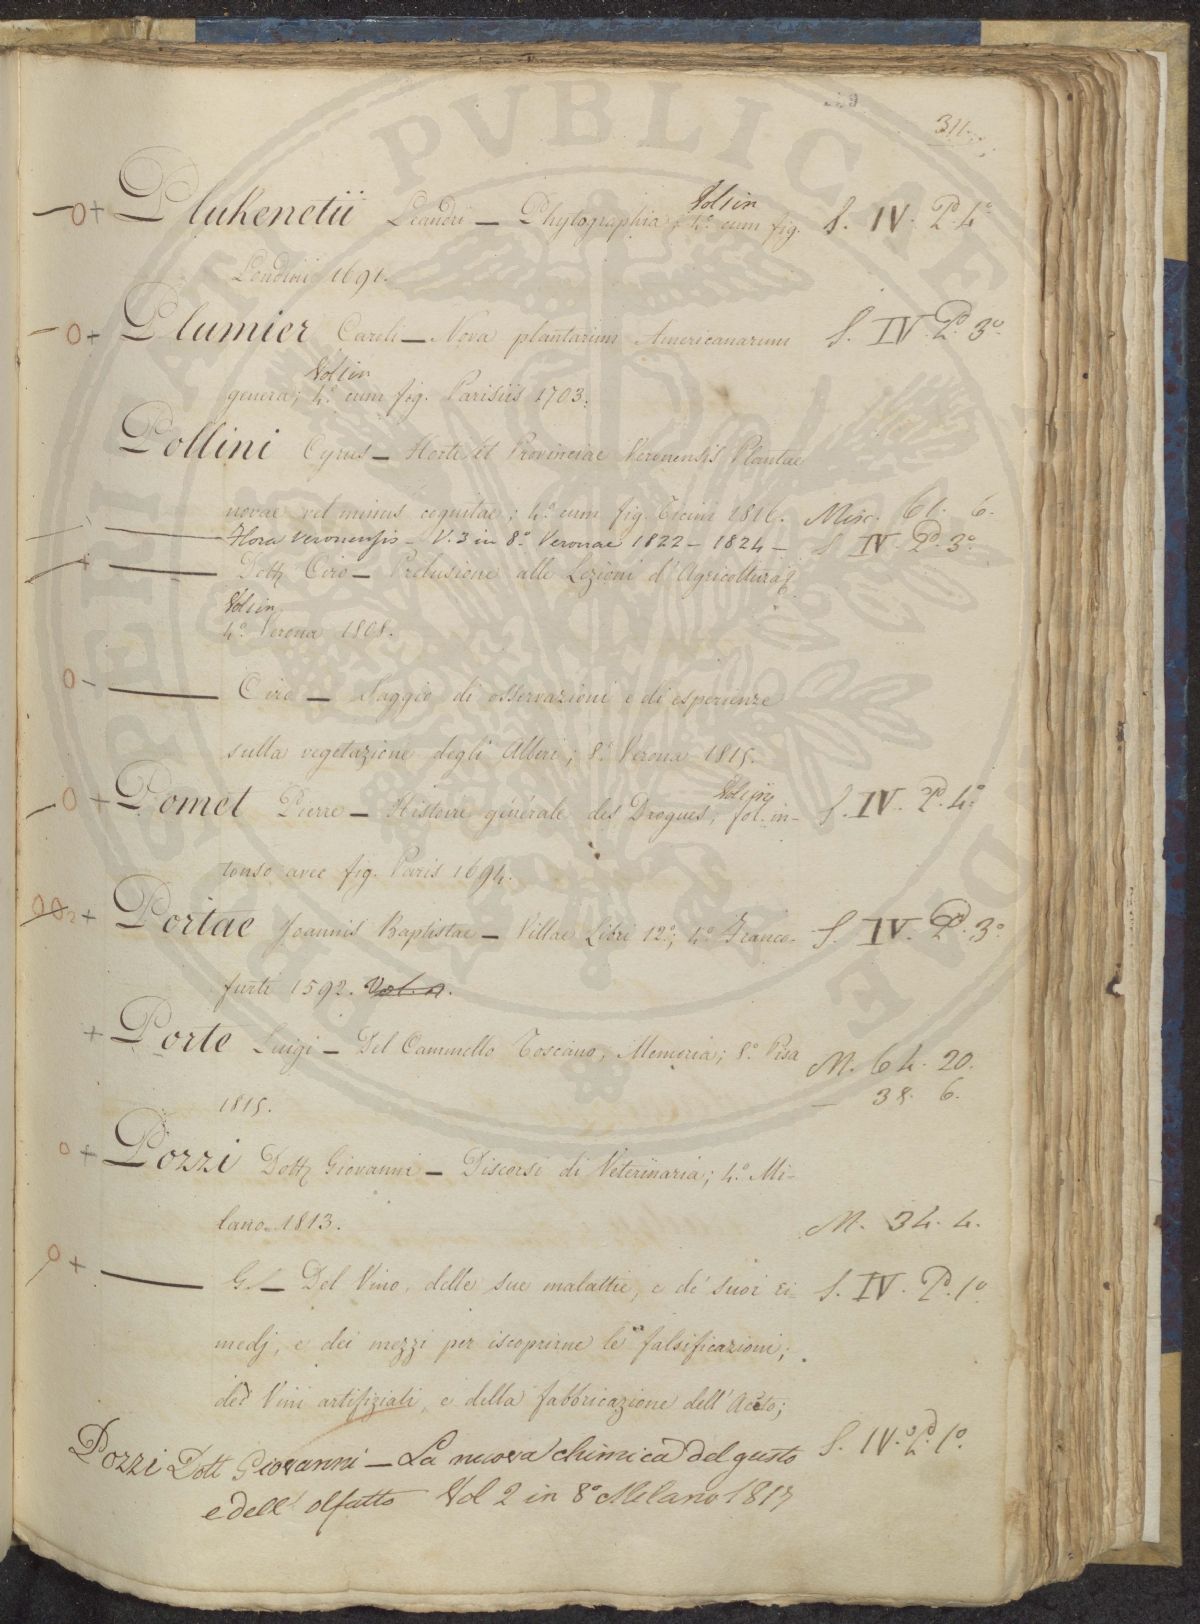 311.
Plukenetii Leandri — Phytographia; Vol 1 in 4.° cum fig. S. IV. Pd. 4.°
Londini 1691.
Plumier Caroli — Nova plantarum Americanarum S. IV. Pd. 3.°
genera; Vol 1 in 4.° cum fig. Parisiis 1703.
Pollini Cyrus — Horti et Provinciae Veronensis Plantae
novae vel minus cognitae; 4.° cum fig. Ticini 1816. Misc. 61. 6.
— Flora Veronensis — V. 3 in 8.° Veronae 1822 — 1824 — S. IV. Pd. 3.°
— Dott. Ciro — Prelusione alle Lezioni d'Agricoltura;
Vol 1 in
4.° Verona 1808.
— Ciro — Saggio di osservazioni e di esperienze
sulla vegetazione degli Alberi; 8.° Verona 1815.
Pomet Pierre — Histoire générale des Drogues; Vol 1 in fol. in- S. IV. Pd. 4.°
tonso avec fig. Paris 1694.
Portae Joannis Baptistae — Villae Libri 12.; 4.° Franco- S. IV. Pd. 3.°
furti 1592.
Porte Luigi — Del Cammello Toscano, Memoria; 8.° Pisa M. 64. 20.
1815. — 38. 6.
Pozzi Dott. Giovanni — Discorsi di Veterinaria; 4.° Mi-
lano 1813. M. 34. 4.
— G. — Del Vino, delle sue malattie, e de' suoi ri- S. IV. Pd. 1.°
medj, e dei mezzi per iscoprirne le falsificazioni;
dei Vini artifiziali, e della fabbricazione dell'Aceto;
Pozzi Dott Giovanni — La nuova chimica del gusto S. IV. Pd. 1.°
e dell' olfatto Vol 2 in 8.° Milano 1817